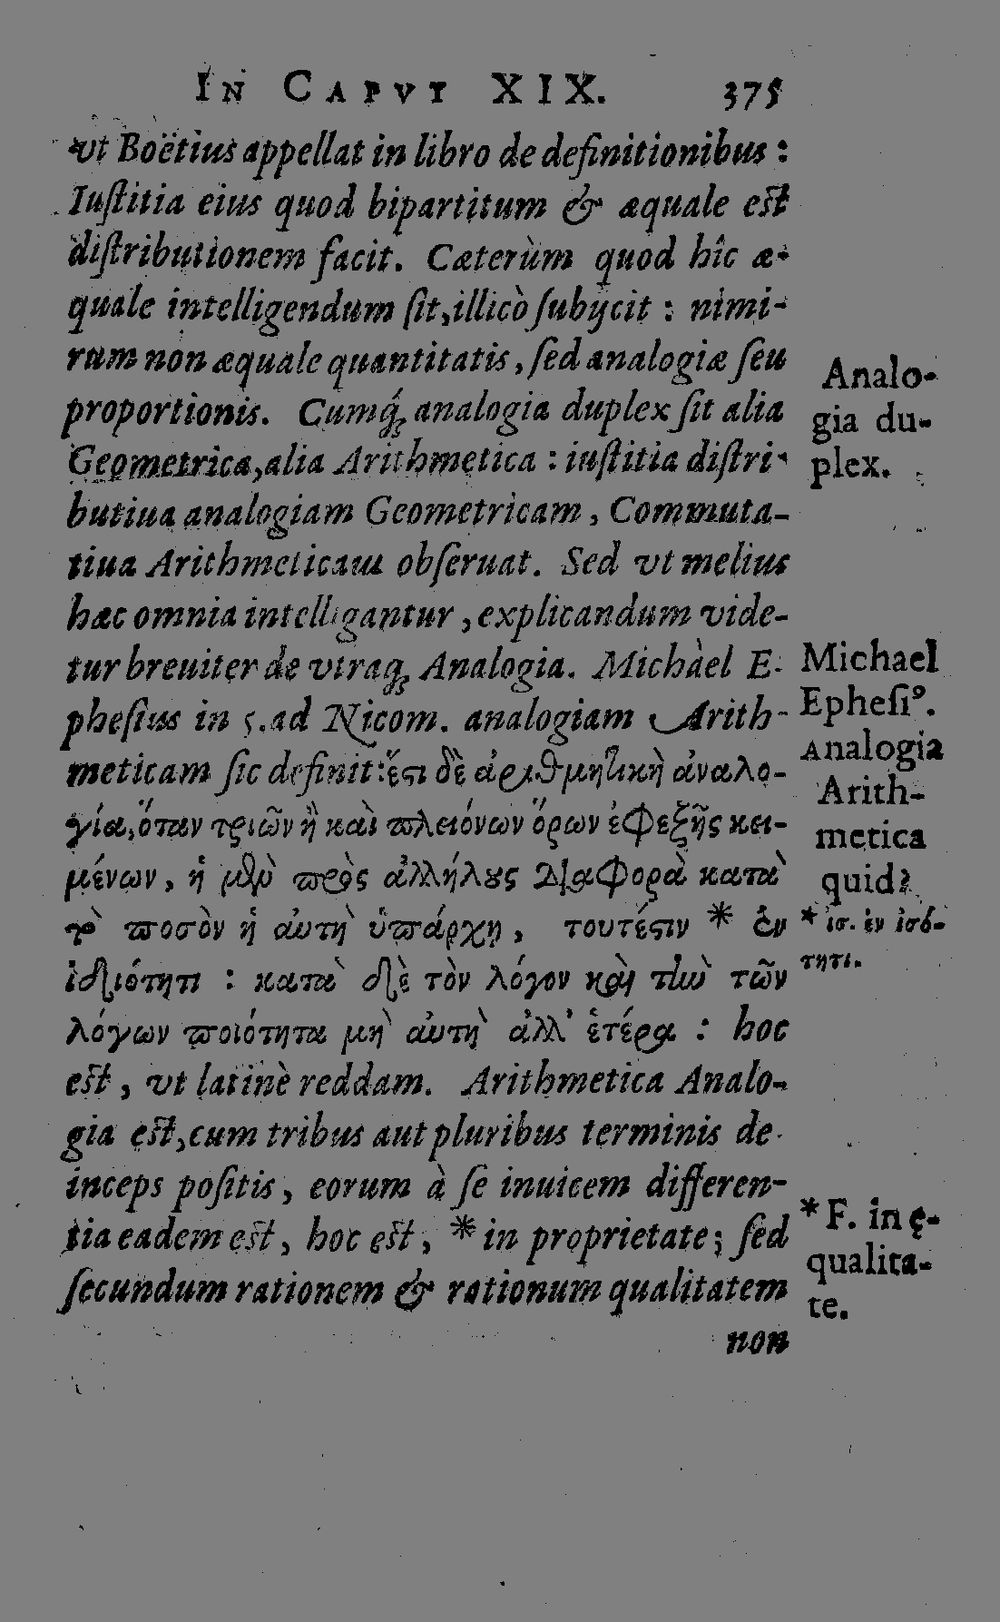 IN CAPVT XIX. 375
vt Boëtius appellat in libro de definitionibus :
Iuſtitia eius quod bipartitum & æquale eſt
diſtributionem facit. Cæterùm quod hîc æ-
quale intelligendum ſit, illicò ſubijcit : nimi-
rum non æquale quantitatis, ſed analogiæ ſeu
proportionis. Cumq́; analogia duplex ſit alia
Geometrica, alia Arithmetica : iuſtitia diſtri-
butiua analogiam Geometricam, Commuta-
tiua Arithmeticam obſeruat. Sed vt melius
hæc omnia intelligantur, explicandum vide-
tur breuiter de vtraq; Analogia. Michàel E-
pheſius in 5. ad Nicom. analogiam Arith-
meticam ſic definit: ἔςι δὲ ἀριθμητικὴ ἀναλο-
γία, ὅταν τριῶν ἢ καὶ πλειόνων ὅρων ἐφεξῆς κει-
μένων, ἡ μὲν πρὸς ἀλλήλους διαφορὰ κατὰ
τὸ ποσὸν ἡ αὐτὴ ὑπάρχῃ, τουτέςιν * ἐν
ἰδιότητι : κατὰ δὲ τὸν λόγον καὶ τὴν τῶν
λόγων ποιότητα μὴ αὐτὴ ἀλλ' ἑτέρα : hoc
eſt, vt latinè reddam. Arithmetica Analo-
gia eſt, cum tribus aut pluribus terminis de-
inceps poſitis, eorum à ſe inuicem differen-
tia eadem eſt, hoc eſt, * in proprietate; ſed
ſecundum rationem & rationum qualitatem
non
Analo-
gia du-
plex.
Michael
Epheſiꝰ.
Analogia
Arith-
metica
quid?
* ἰσ. ἐν ἰσό-
τητι.
* F. in ę-
qualita-
te.